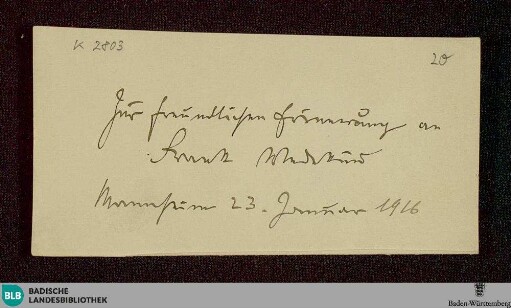 K 2803
20
Zur freundlichen Erinnerung an
Frank Wedekind
Mannheim 23. Januar 1916
BLB BADISCHE
LANDESBIBLIOTHEK
Baden-Württemberg